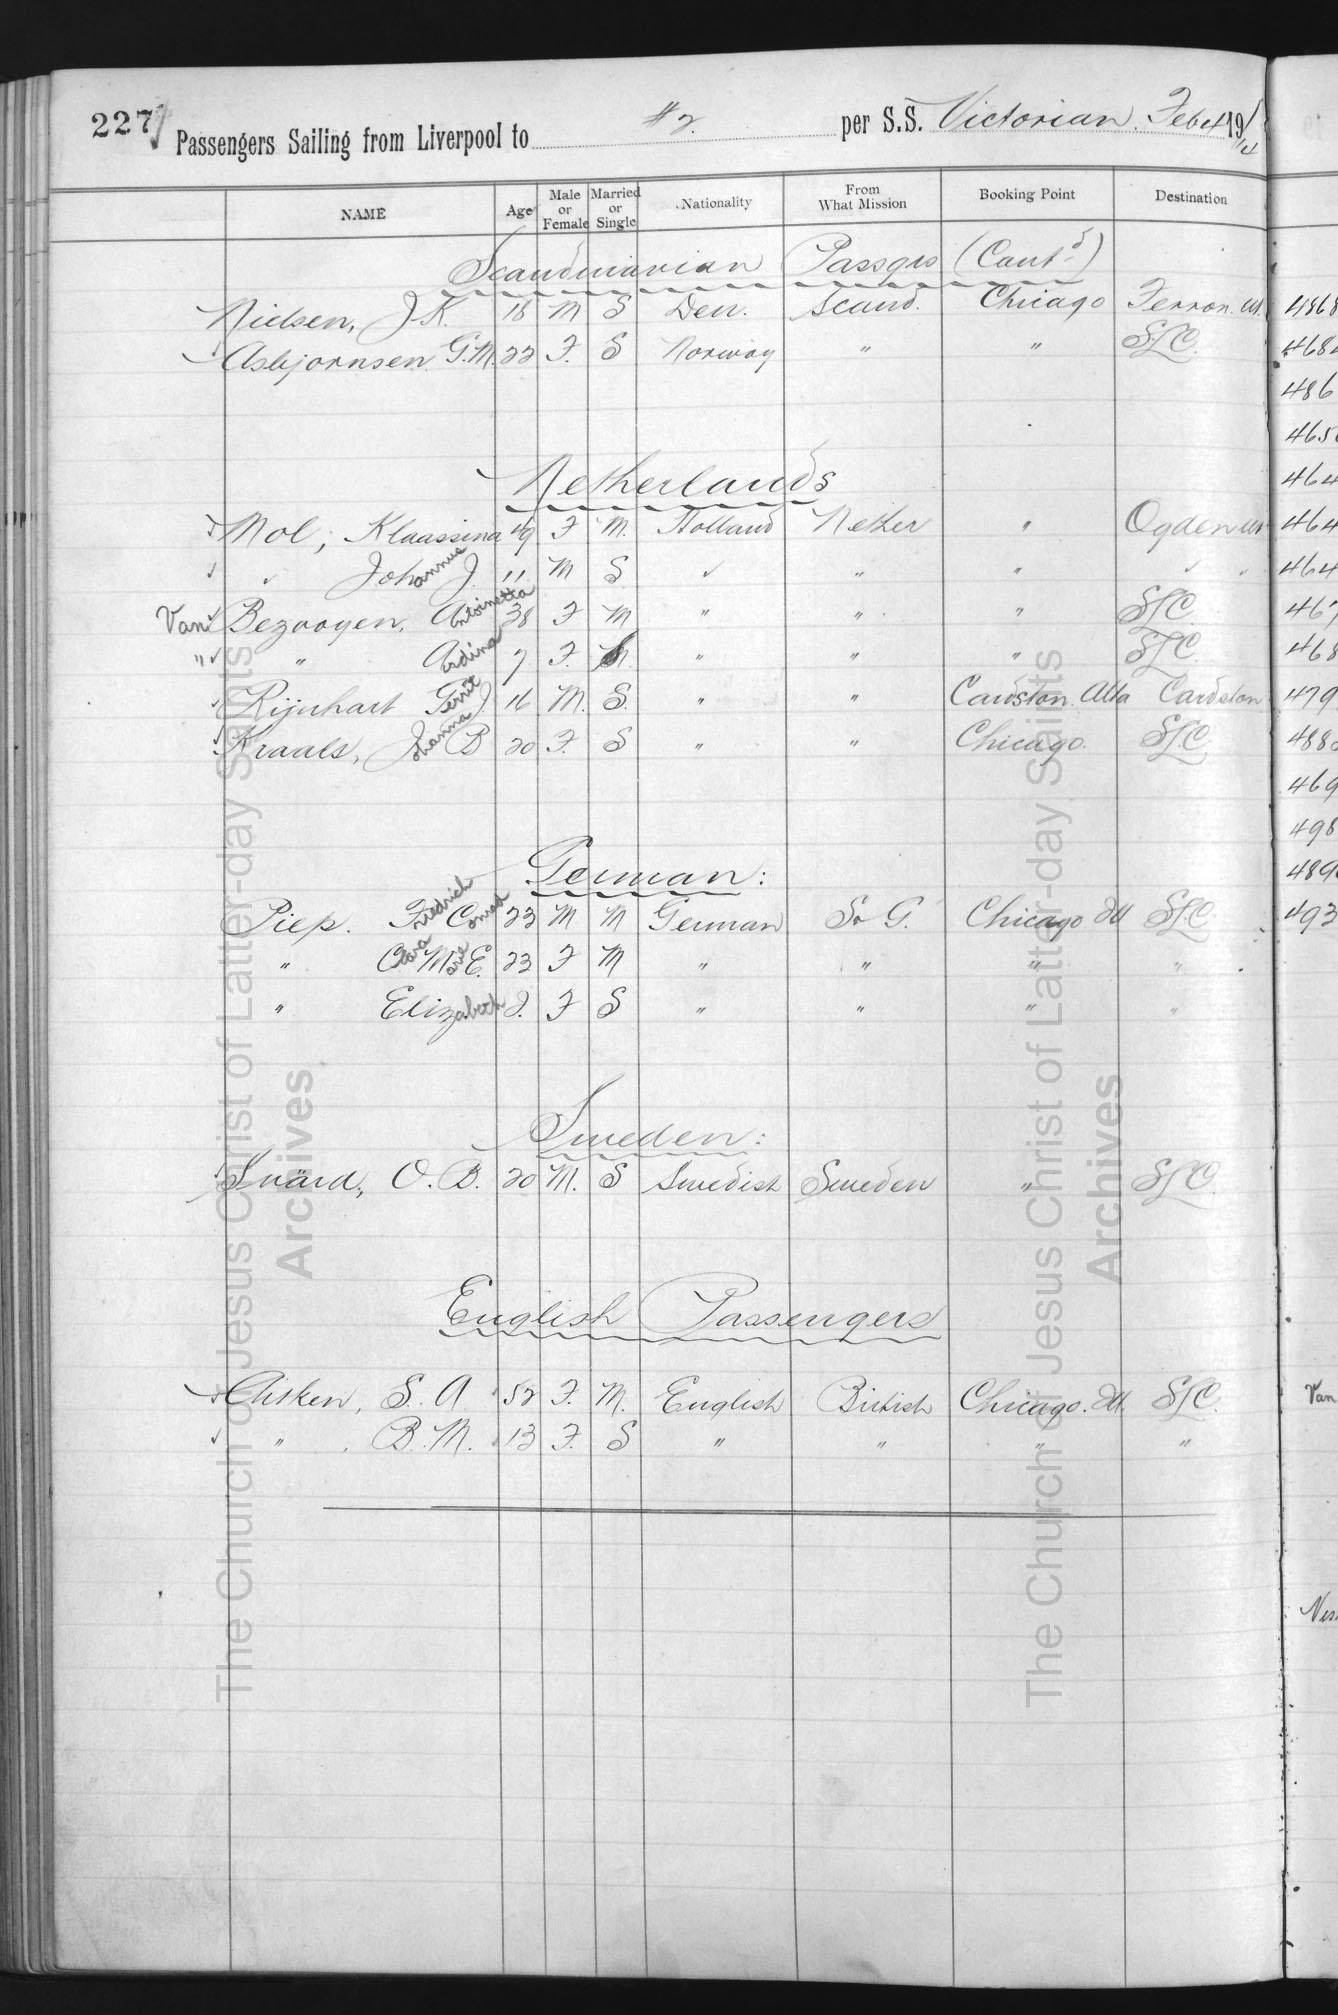 227
Passengers Sailing from Liverpool to #2. per S.S. Victorian. Feb 4 1914
NAME Age Male or Female Married or Single Nationality From What Mission Booking Point Destination
Scandinavian Passgrs (Cont'd)
Nielsen, J K. 18 M S Den. Scand. Chicago Ferron. Ut. 4868
Asbjornsen G.M. 22 F. S Norway " " SLC. 468
486
465
Netherlands 464
Mol, Klaassina 49 F M. Holland Nether " Ogden Ut 464
✓ ✓ Johannus J. 11 M S ✓ " " ✓ ✓ 464
Van ✓ Bezooyen, Antoinetta 38 F M " " " SLC. 467
" ✓ " Ardina 7 F. S " " " SLC. 468
✓ Rijnhart Gerrit J 16 M. S. " " Cardston. Alta Cardston 479
✓ Kraals, Johanna B 20 F. S " " Chicago. SLC. 488
469
498
German: 489
Piep. Friedrich Conrad 23 M M German S & G. Chicago Ill SLC 493
" Clara Marie E. 23 F M " " " "
" Elizabeth 2. F S " " " "
Sweden:
Svärd, O. B. 20 M. S Swedish Sweden " SLC.
English Passengers
Aisken, S. A. 52 F. M. English British Chicago. Ill. SLC. Van
✓ " B. M. 13 F. S " " " "
The Church of Jesus Christ of Latter-day Saints
Archives
The Church of Jesus Christ of Latter-day Saints
Archives